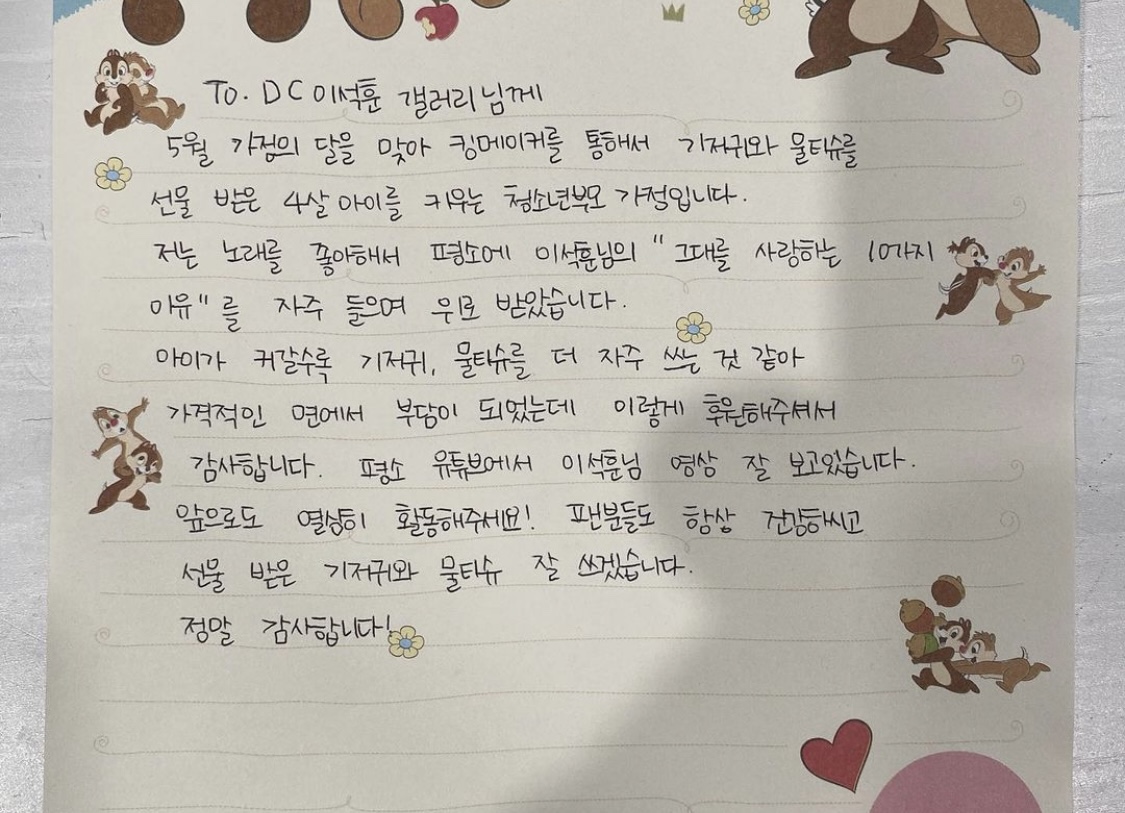 To. DC 이석훈 갤러리님께
5월 가정의 달을 맞아 킹메이커를 통해서 기저귀와 물티슈를
선물 받은 4살 아이를 키우는 청소년부모 가정입니다.
저는 노래를 좋아해서 평소에 이석훈님의 "그대를 사랑하는 10가지
이유"를 자주 들으며 위로 받았습니다.
아이가 커갈수록 기저귀, 물티슈를 더 자주 쓰는 것 같아
가격적인 면에서 부담이 되었는데 이렇게 후원해주셔서
감사합니다. 평소 유튜브에서 이석훈님 영상 잘 보고있습니다.
앞으로도 열심히 활동해주세요! 팬분들도 항상 건강하시고
선물 받은 기저귀와 물티슈 잘 쓰겠습니다.
정말 감사합니다!